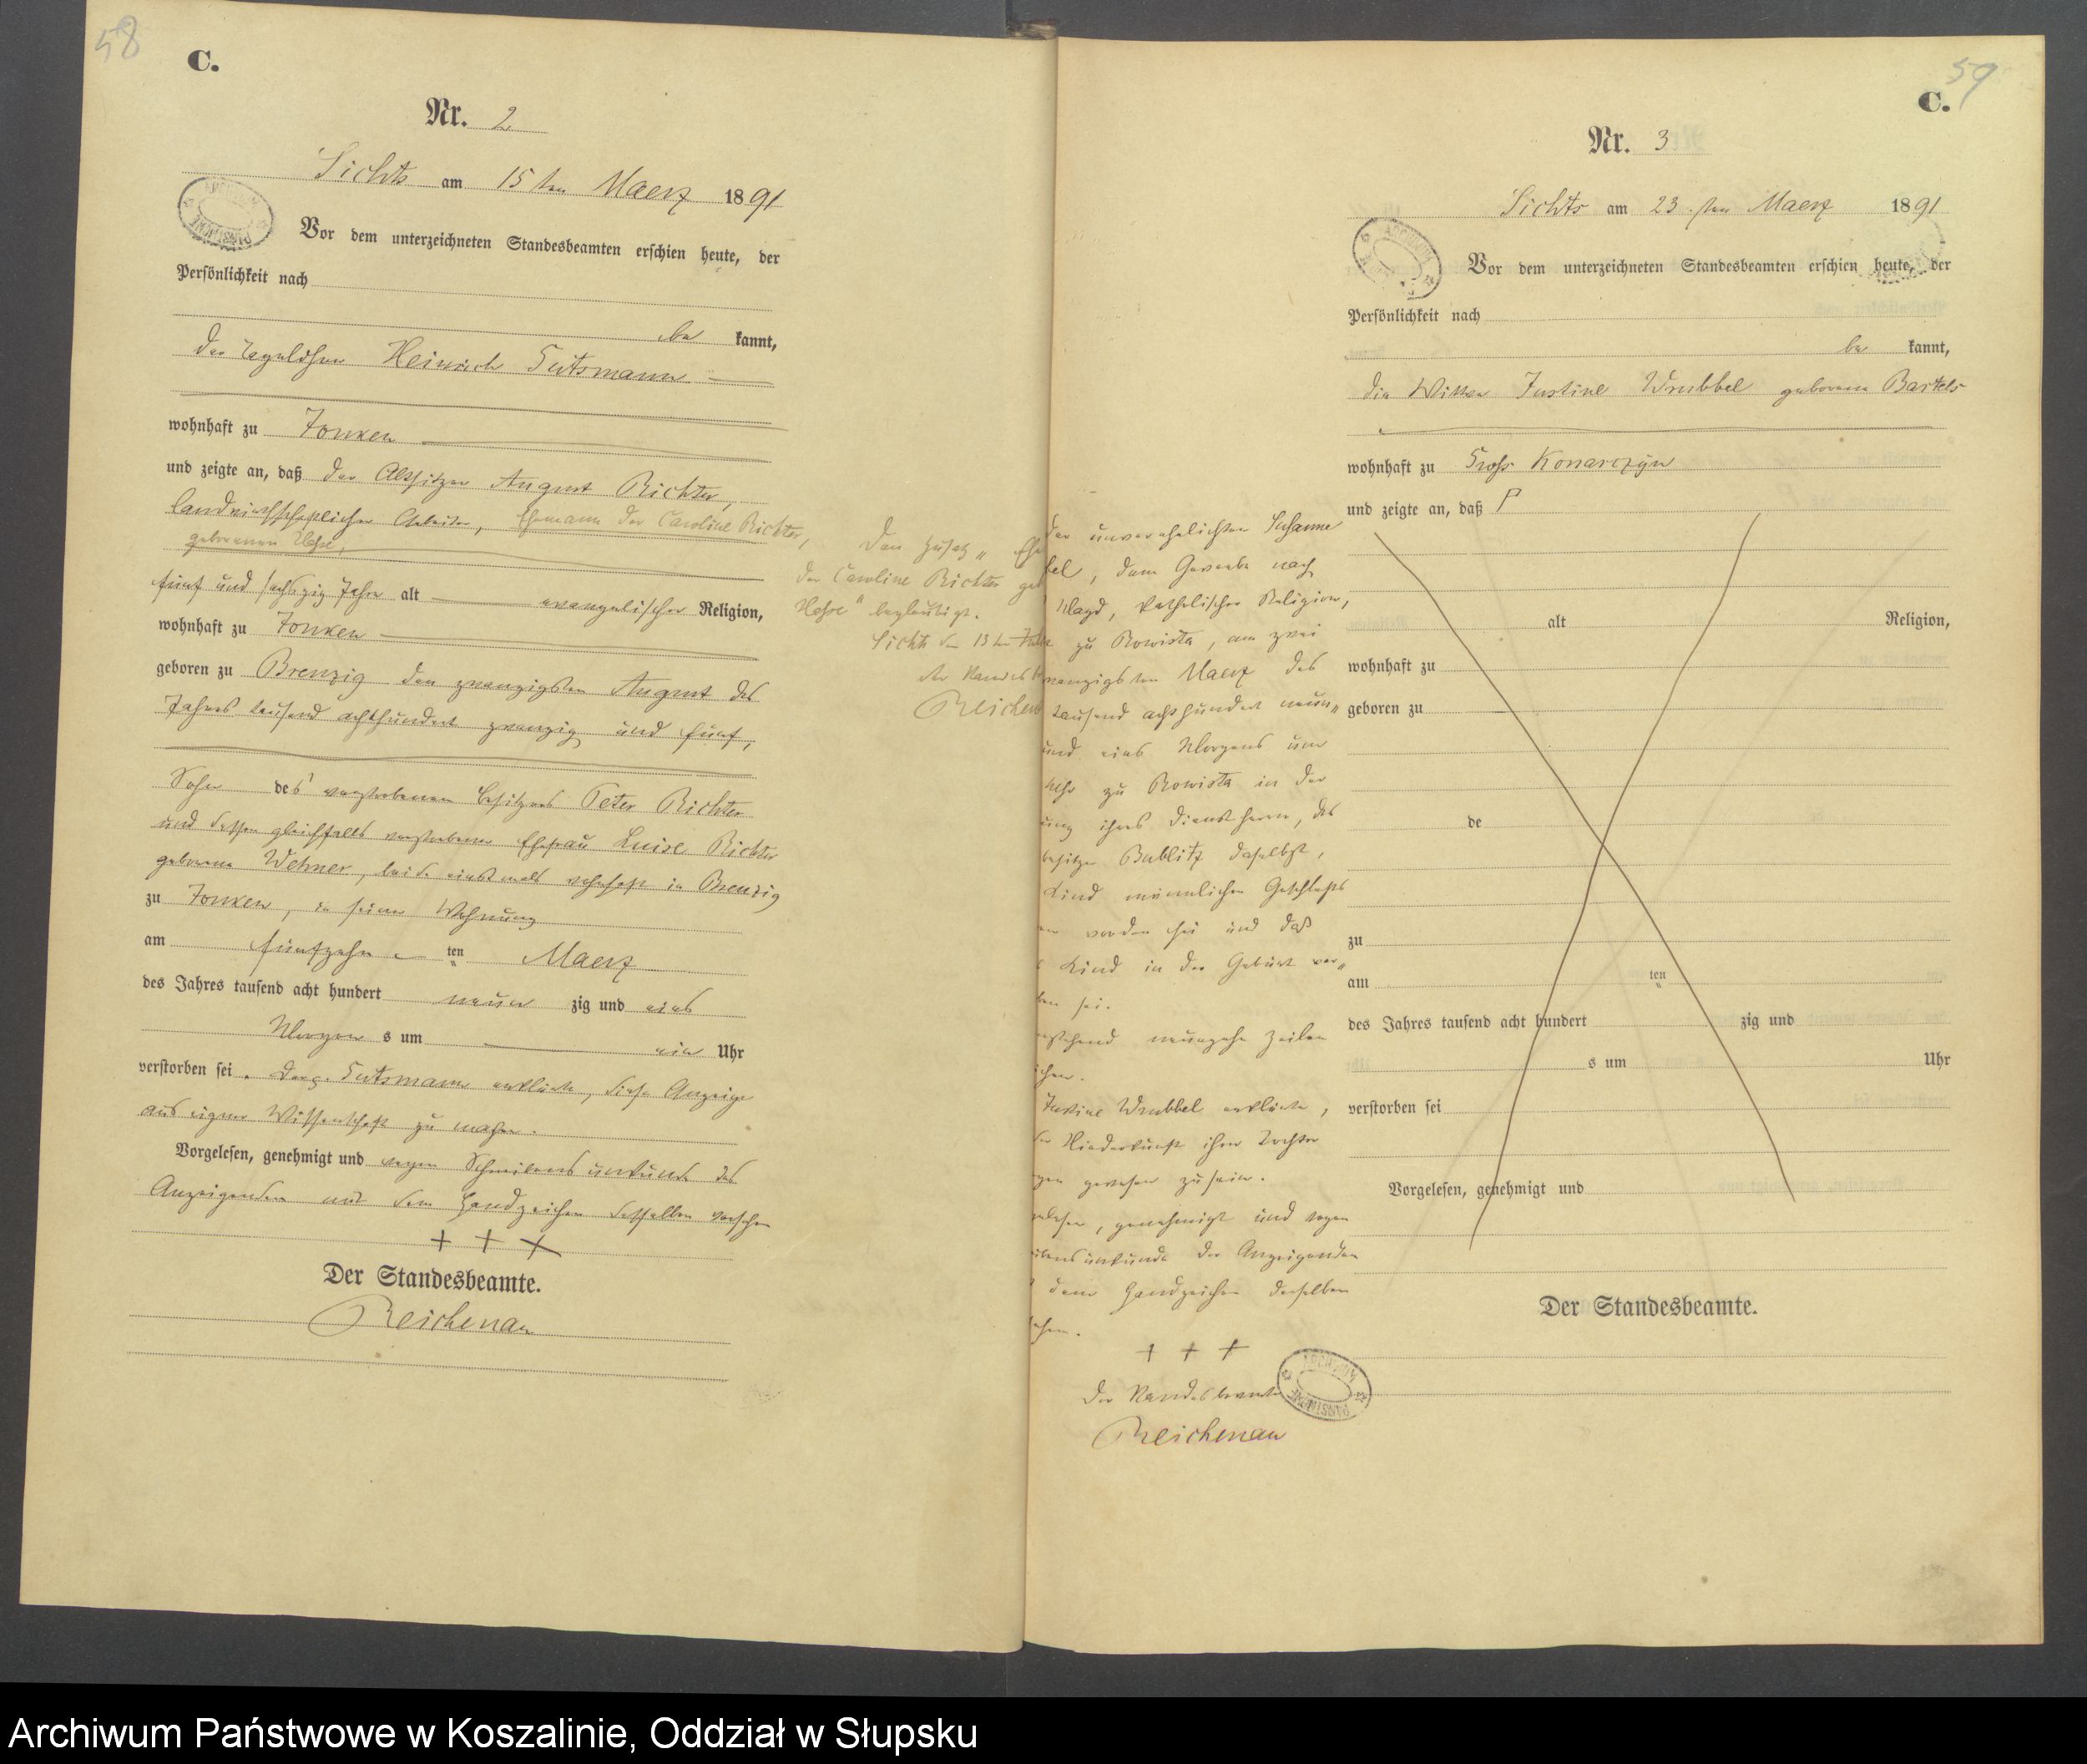 58
C.
Nr. 2
Sichts am 15ten Maerz 1891
Vor dem unterzeichneten Standesbeamten erschien heute, der
Persönlichkeit nach
be kannt,
der Tagelöhner Heinrich Gutsmann
wohnhaft zu Jonken
und zeigte an, daß der Altsitzer August Richter,
landwirthschaftlicher Arbeiter, Ehemann der Caroline Richter,
geborenen Hesse,
fünf und sechszig Jahre alt evangelischer Religion,
wohnhaft zu Jonken
geboren zu Brenzig den zwanzigsten August des
Jahres tausend achthundert zwanzig und fünf,
Sohn des verstorbenen Besitzers Peter Richter
und dessen gleichfalls verstorbene Ehefrau Luise Richter
geborene Wehner, beide einstmals wohnhaft in Brenzig
zu Jonken, in seiner Wohnung
am fünfzehn ten Maerz
des Jahres tausend acht hundert neun zig und eins
Morgen s um ein Uhr
verstorben sei. Der p. Gutsmann erklärte, diese Anzeige
aus eigener Wissenschaft zu machen.
Vorgelesen, genehmigt und wegen Schreibensunkunde des
Anzeigenden mit dem Handzeichen desselben versehen
+ + +
Der Standesbeamte.
Reichenau
Den Zusatz „Ehe
der Caroline Richter geb
Hesse" beglaubigt.
Sichts den 13ten
der Standesb
Reichen
59
C.
Nr. 3
Sichts am 23.ten Maerz 1891
Vor dem unterzeichneten Standesbeamten erschien heute, der
Persönlichkeit nach
be kannt,
die Wittwe Justine Wrubbel geborene Bartels
wohnhaft zu Gross Konarczyn
und zeigte an, daß
alt Religion,
wohnhaft zu
geboren zu
de
zu
am ten
des Jahres tausend acht hundert zig und
s um Uhr
verstorben sei
Vorgelesen, genehmigt und
Der Standesbeamte.
der unverehelichten Susanne
bel, dem Gewerbe nach
Magd, katholischer Religion,
zu Rowista, am zwei
wanzigsten Maerz des
tausend achthundert neun„
und eins Morgens um
Uhr zu Rowista in der
ung ihres Dienstherrn, des
besitzer Bublitz daselbst,
Kind männlichen Geschlechts
en worden sei und daß
Kind in der Geburt ver„
ben sei.
stehend neunzehn Zeilen
chen.
Justine Wrubbel erklärte,
der Niederkunft ihrer Tochter
gen gewesen zu sein.
elesen, genehmigt und wegen
ibensunkunde der Anzeigenden
dem Handzeichen derselben
ehen.
+ + +
Der Standesbeamte
Reichenau
Archiwum Państwowe w Koszalinie, Oddział w Słupsku